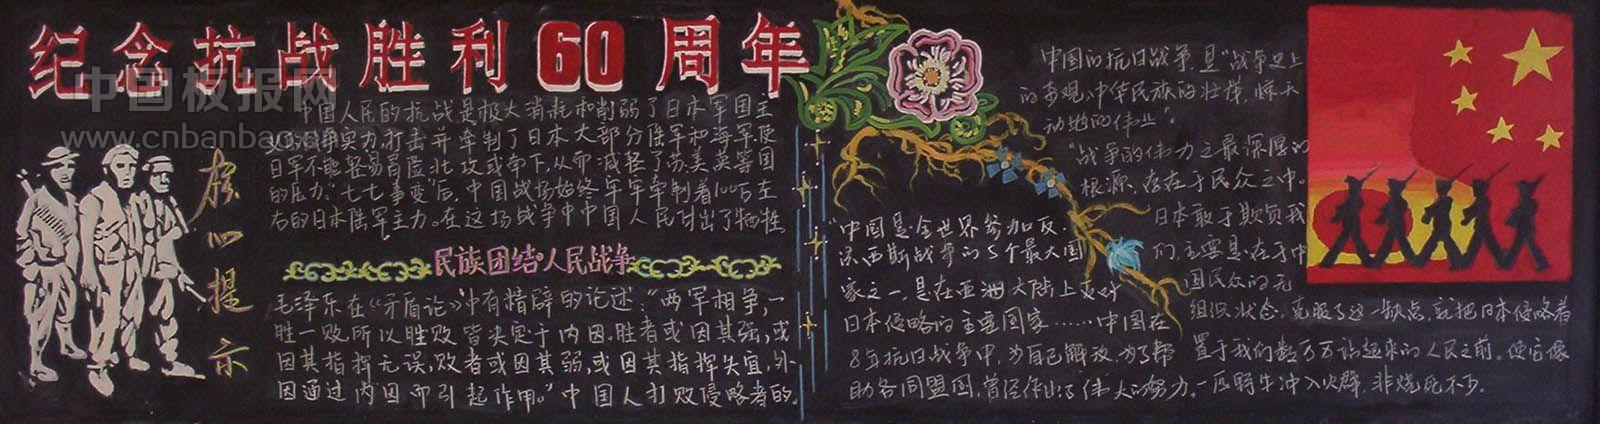 纪念抗战胜利60周年
中国板报网
www.cnbanbao
核心提示
中国人民的抗战是极大消耗和削弱了日本军国主
义的战争实力,打击并牵制了日本大部分陆军和海军,使
日军不能轻易冒险北攻或南下,从而减轻了苏美英等国
的压力。“七七事变”后,中国战场始终年年牵制着100万左
右的日本陆军主力。在这场战争中中国人民付出了牺牲
民族团结·人民战争
毛泽东在《矛盾论》中有精辟的论述:“两军相争,一
胜一败,所以胜败皆决定于内因。胜者或因其强,或
因其指挥无误,败者或因其弱,或因其指挥失宜,外
因通过内因而引起作用。”中国人打败侵略者的,
“中国是全世界参加反
法西斯战争的5个最大国
家之一,是在亚洲大陆上反对
日本侵略的主要国家……中国在
8年抗日战争中,为自己解放,为了帮
助各同盟国,曾经作出了伟大的努力。
中国的抗日战争,是“战争史上
的奇观,中华民族的壮举,惊天
动地的伟业”。
“战争的伟力之最深厚的
根源,存在于民众之中。
日本敢于欺负我
们,主要是在于中
国民众的无
组织状态,克服了这一缺点,就把日本侵略者
置于我们数万万站起来的人民之前,使它像
一匹野牛冲入火群,非烧死不可.